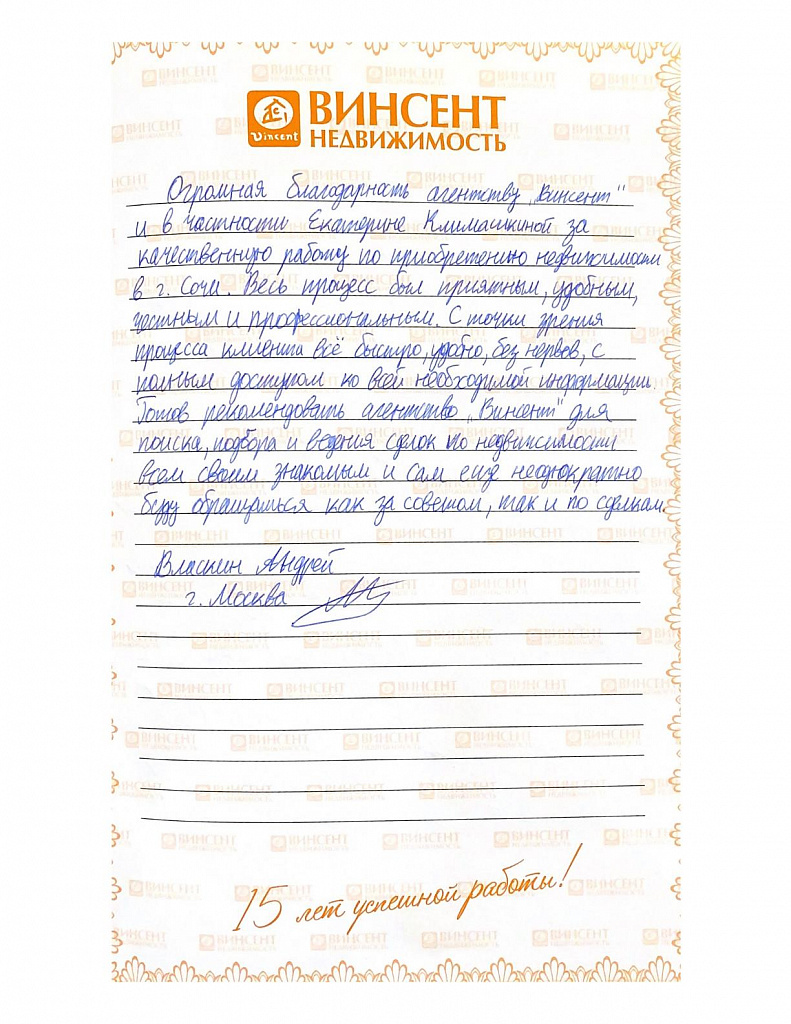 Vincent
ВИНСЕНТ
НЕДВИЖИМОСТЬ
Огромная благодарность агентству „Винсент"
и в частности Екатерине Климашкиной за
качественную работу по приобретению недвижимости
в г. Сочи. Весь процесс был приятным, удобным,
честным и профессиональным. С точки зрения
процесса клиента всё быстро, удобно, без нервов, с
полным доступом ко всей необходимой информации.
Готов рекомендовать агентство „Винсент" для
поиска, подбора и ведения сделок по недвижимости
всем своим знакомым и сам ещё неоднократно
буду обращаться как за советом, так и по сделкам.
Власкин Андрей
г. Москва
15 лет успешной работы!